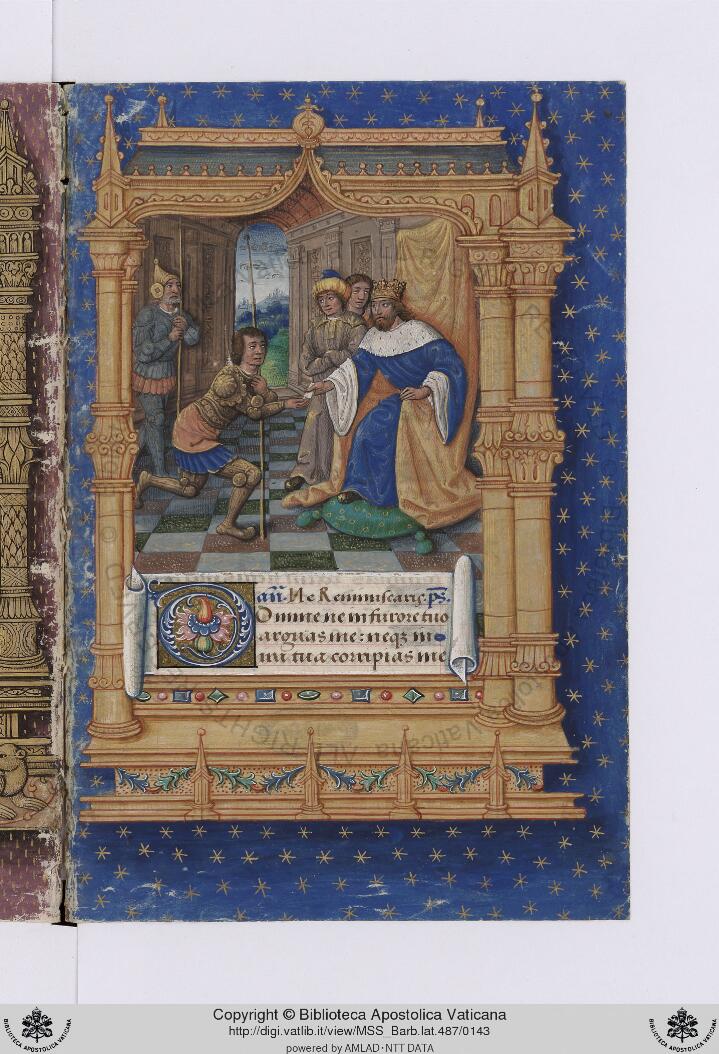 añ. Ne Reminiscaris. ps.
Domine ne in furore tuo
arguas me: neqz in
ira tua corripias me
Copyright © Biblioteca Apostolica Vaticana
http://digi.vatlib.it/view/MSS_Barb.lat.487/0143
powered by AMLAD·NTT DATA
BIBLIOTECA APOSTOLICA VATICANA
BIBLIOTECA APOSTOLICA VATICANA